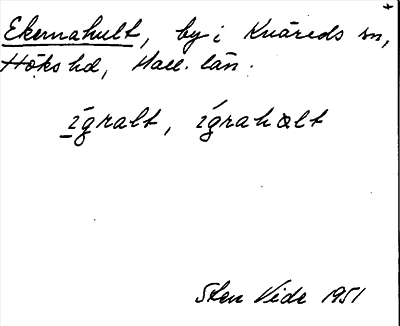 Ekernahult, by i Knäreds sn,
Höks hd, Hall. län.
ígralt, ígrahalt
Sten Vide 1951